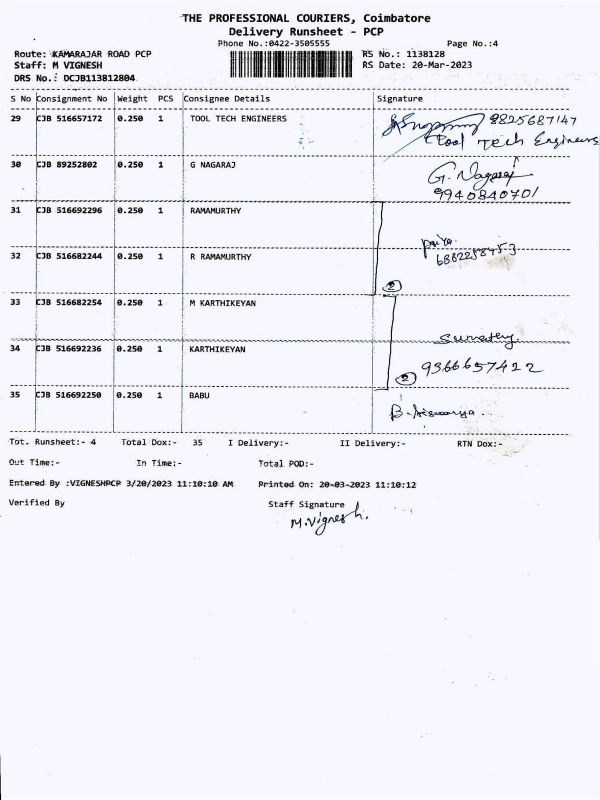 THE PROFESSIONAL COURIERS, Coimbatore
Delivery Runsheet - PCP
Phone No.:0422-3505555 Page No.:4
Route: KAMARAJAR ROAD PCP RS No.: 1138128
Staff: M VIGNESH RS Date: 20-Mar-2023
DRS No.: DCJB113812804
S No Consignment No Weight PCS Consignee Details Signature
29 CJB 516657172 0.250 1 TOOL TECH ENGINEERS 9825687147
Tool Tech Engineers
30 CJB 89252802 0.250 1 G NAGARAJ G. Nagaraj
9940840701
31 CJB 516692296 0.250 1 RAMAMURTHY
priya
32 CJB 516682244 0.250 1 R RAMAMURTHY
2
33 CJB 516682254 0.250 1 M KARTHIKEYAN
34 CJB 516692236 0.250 1 KARTHIKEYAN
2 9366657422
35 CJB 516692250 0.250 1 BABU B.
Tot. Runsheet:- 4 Total Dox:- 35 I Delivery:- II Delivery:- RTN Dox:-
Out Time:- In Time:- Total POD:-
Entered By :VIGNESHPCP 3/20/2023 11:10:10 AM Printed On: 20-03-2023 11:10:12
Verified By Staff Signature
M.Vignesh.